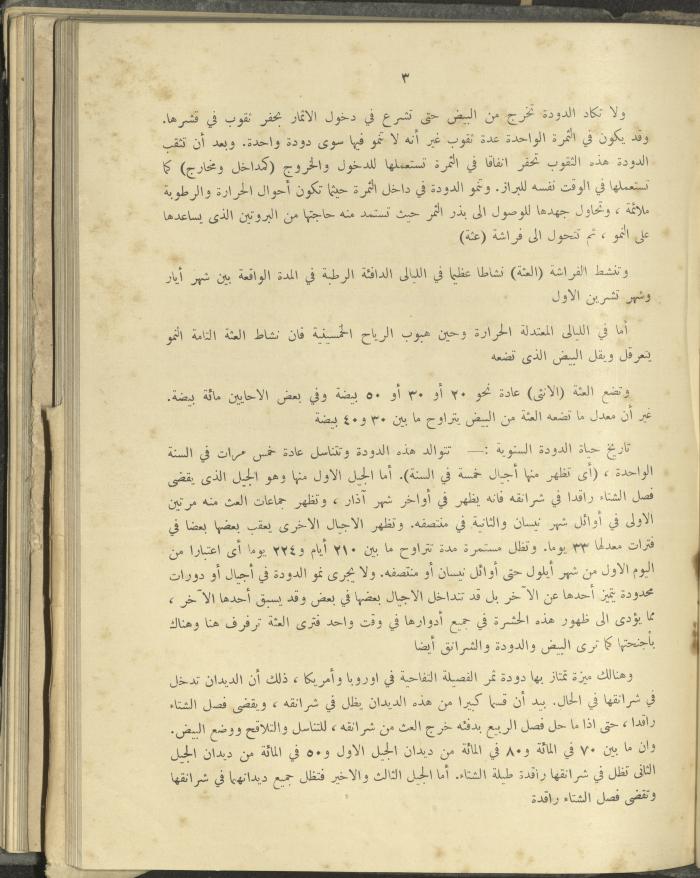 ٣
ولا تكاد الدودة تخرج من البيض حتى تشرع في دخول الاثمار بحفر ثقوب في قشرها.
وقد يكون في الثمرة الواحدة عدة ثقوب غير أنه لا تنمو فيها سوى دودة واحدة. وبعد أن تثقب
الدودة هذه الثقوب تحفر انفاقا في الثمرة تستعملها للدخول والخروج (كمداخل ومخارج) كما
تستعملها في الوقت نفسه للبراز. وتنمو الدودة في داخل الثمرة حيثما تكون أحوال الحرارة والرطوبة
ملائمة ، وتحاول جهدها للوصول الى بذر الثمر حيث تستمد منه حاجتها من البروتين الذى يساعدها
على النمو ، ثم تتحول الى فراشة (عثة)
وتنشط الفراشة (العثة) نشاطا عظيما في الليالى الدافئة الرطبة في المدة الواقعة بين شهر أيار
وشهر تشرين الاول
أما في الليالى المعتدلة الحرارة وحين هبوب الرياح الخمسينية فان نشاط العثة التامة النمو
يتعرقل ويقل البيض الذى تضعه
وتضع العثة (الانثى) عادة نحو ٢٠ أو ٣٠ أو ٥٠ بيضة وفي بعض الاحايين مائة بيضة.
غير أن معدل ما تضعه العثة من البيض يتراوح ما بين ٣٠ و٤٠ بيضة
تاريخ حياة الدودة السنوية :— تتوالد هذه الدودة وتتناسل عادة خمس مرات في السنة
الواحدة ، (أى تظهر منها أجيال خمسة في السنة). أما الجيل الاول منها وهو الجيل الذى يقضى
فصل الشتاء راقدا في شرانقه فانه يظهر في أواخر شهر آذار ، وتظهر جماعات العث منه مرتين
الاولى في أوائل شهر نيسان والثانية في منتصفه. وتظهر الاجيال الاخرى يعقب بعضها بعضا في
فترات معدلها ٣٣ يوما. وتظل مستمرة مدة تتراوح ما بين ٢١٠ أيام و٢٢٤ يوما أى اعتبارا من
اليوم الاول من شهر أيلول حتى أوائل نيسان أو منتصفه. ولا يجرى نمو الدودة في أجيال أو دورات
محدودة يتميز أحدها عن الآخر بل قد تتداخل الاجيال بعضها في بعض وقد يسبق أحدها الآخر ،
مما يؤدى الى ظهور هذه الحشرة في جميع أدوارها في وقت واحد فترى العثة ترفرف هنا وهناك
بأجنحتها كما ترى البيض والدودة والشرانق أيضا
وهنالك ميزة تمتاز بها دودة ثمر الفصيلة التفاحية في اوروبا وأمريكا ، ذلك أن الديدان تدخل
في شرانقها في الحال. بيد أن قسما كبيرا من هذه الديدان يظل في شرانقه ، ويقضى فصل الشتاء
راقدا ، حتى اذا ما حل فصل الربيع بدفئه خرج العث من شرانقه ، للتناسل والتلاقح ووضع البيض.
وان ما بين ٧٠ في المائة و٨٠ في المائة من ديدان الجيل الاول و٥٠ في المائة من ديدان الجيل
الثانى تظل في شرانقها راقدة طيلة الشتاء. أما الجيل الثالث والاخير فتظل جميع ديدانهما في شرانقها
وتقضى فصل الشتاء راقدة